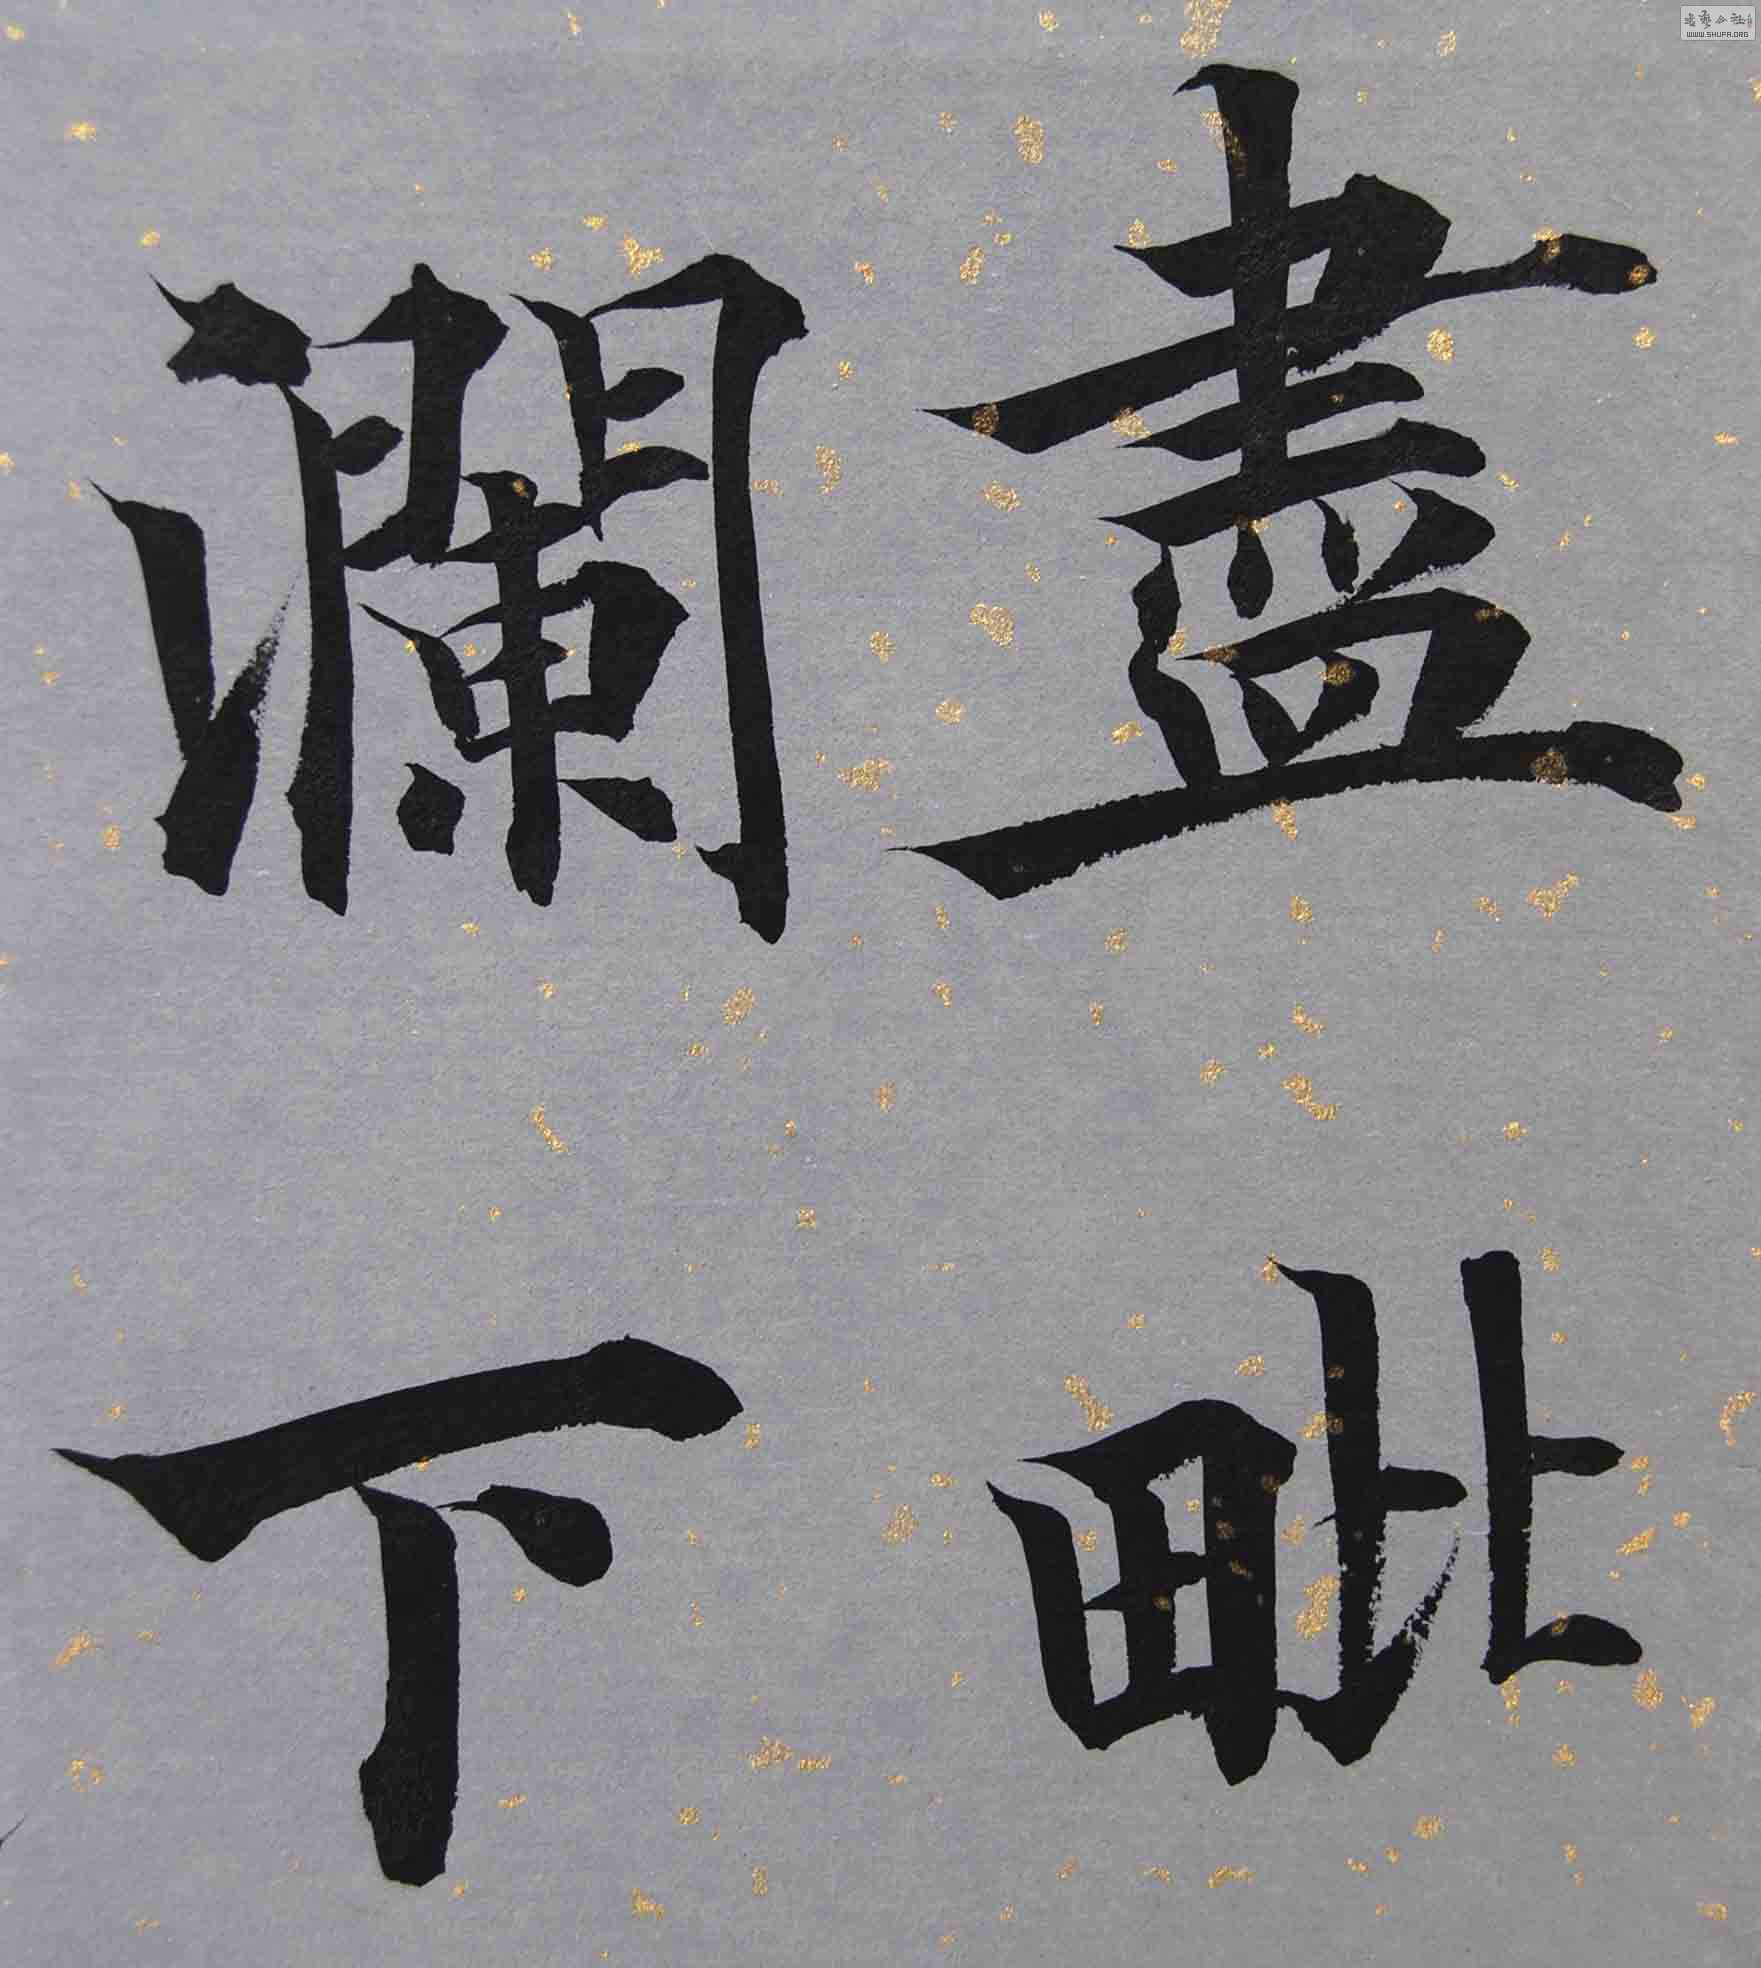 盡毗
瀾下
書藝公社
WWW.SHUFA.ORG